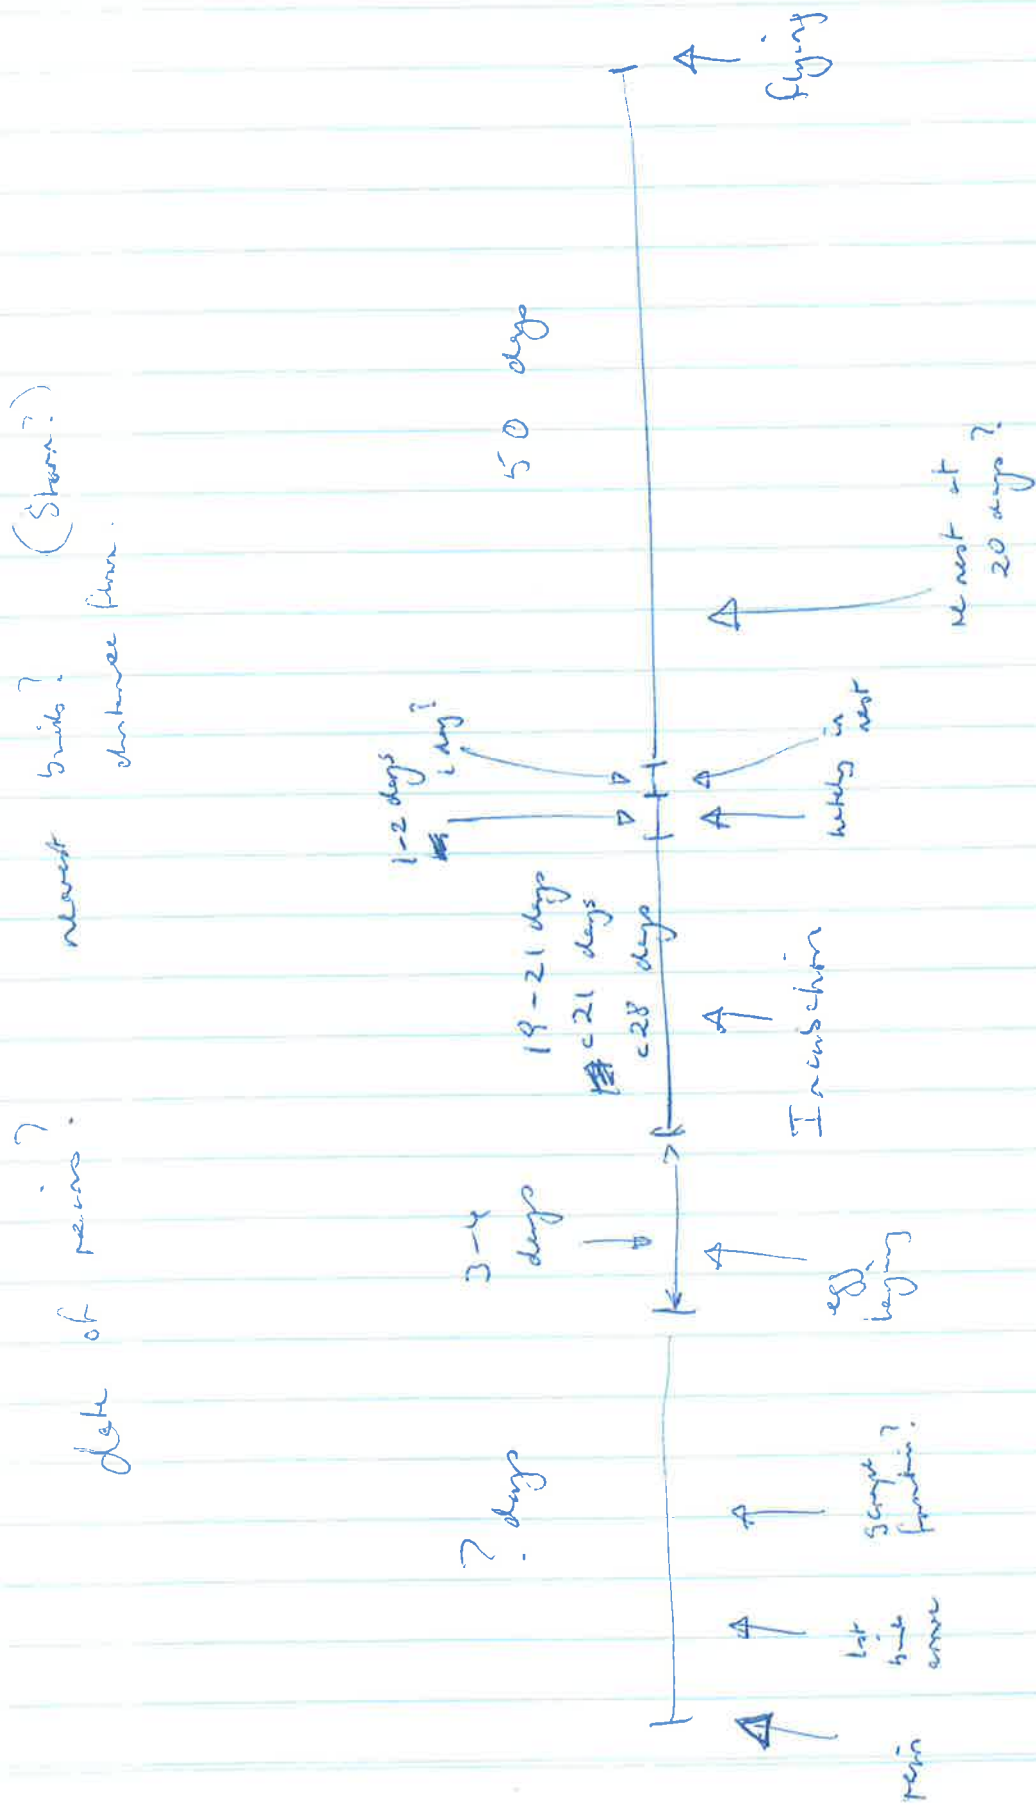 date of rains?
nearest birds? (Storm?)
distance flown.
? days
3-4
days
19-21 days
c21 days
c28 days
1-2 days
1 day?
50 days
rain
1st
birds
arrive
scrape
formation?
egg
laying
Incubation
hatching
in
nest
nest at
20 days?
flying